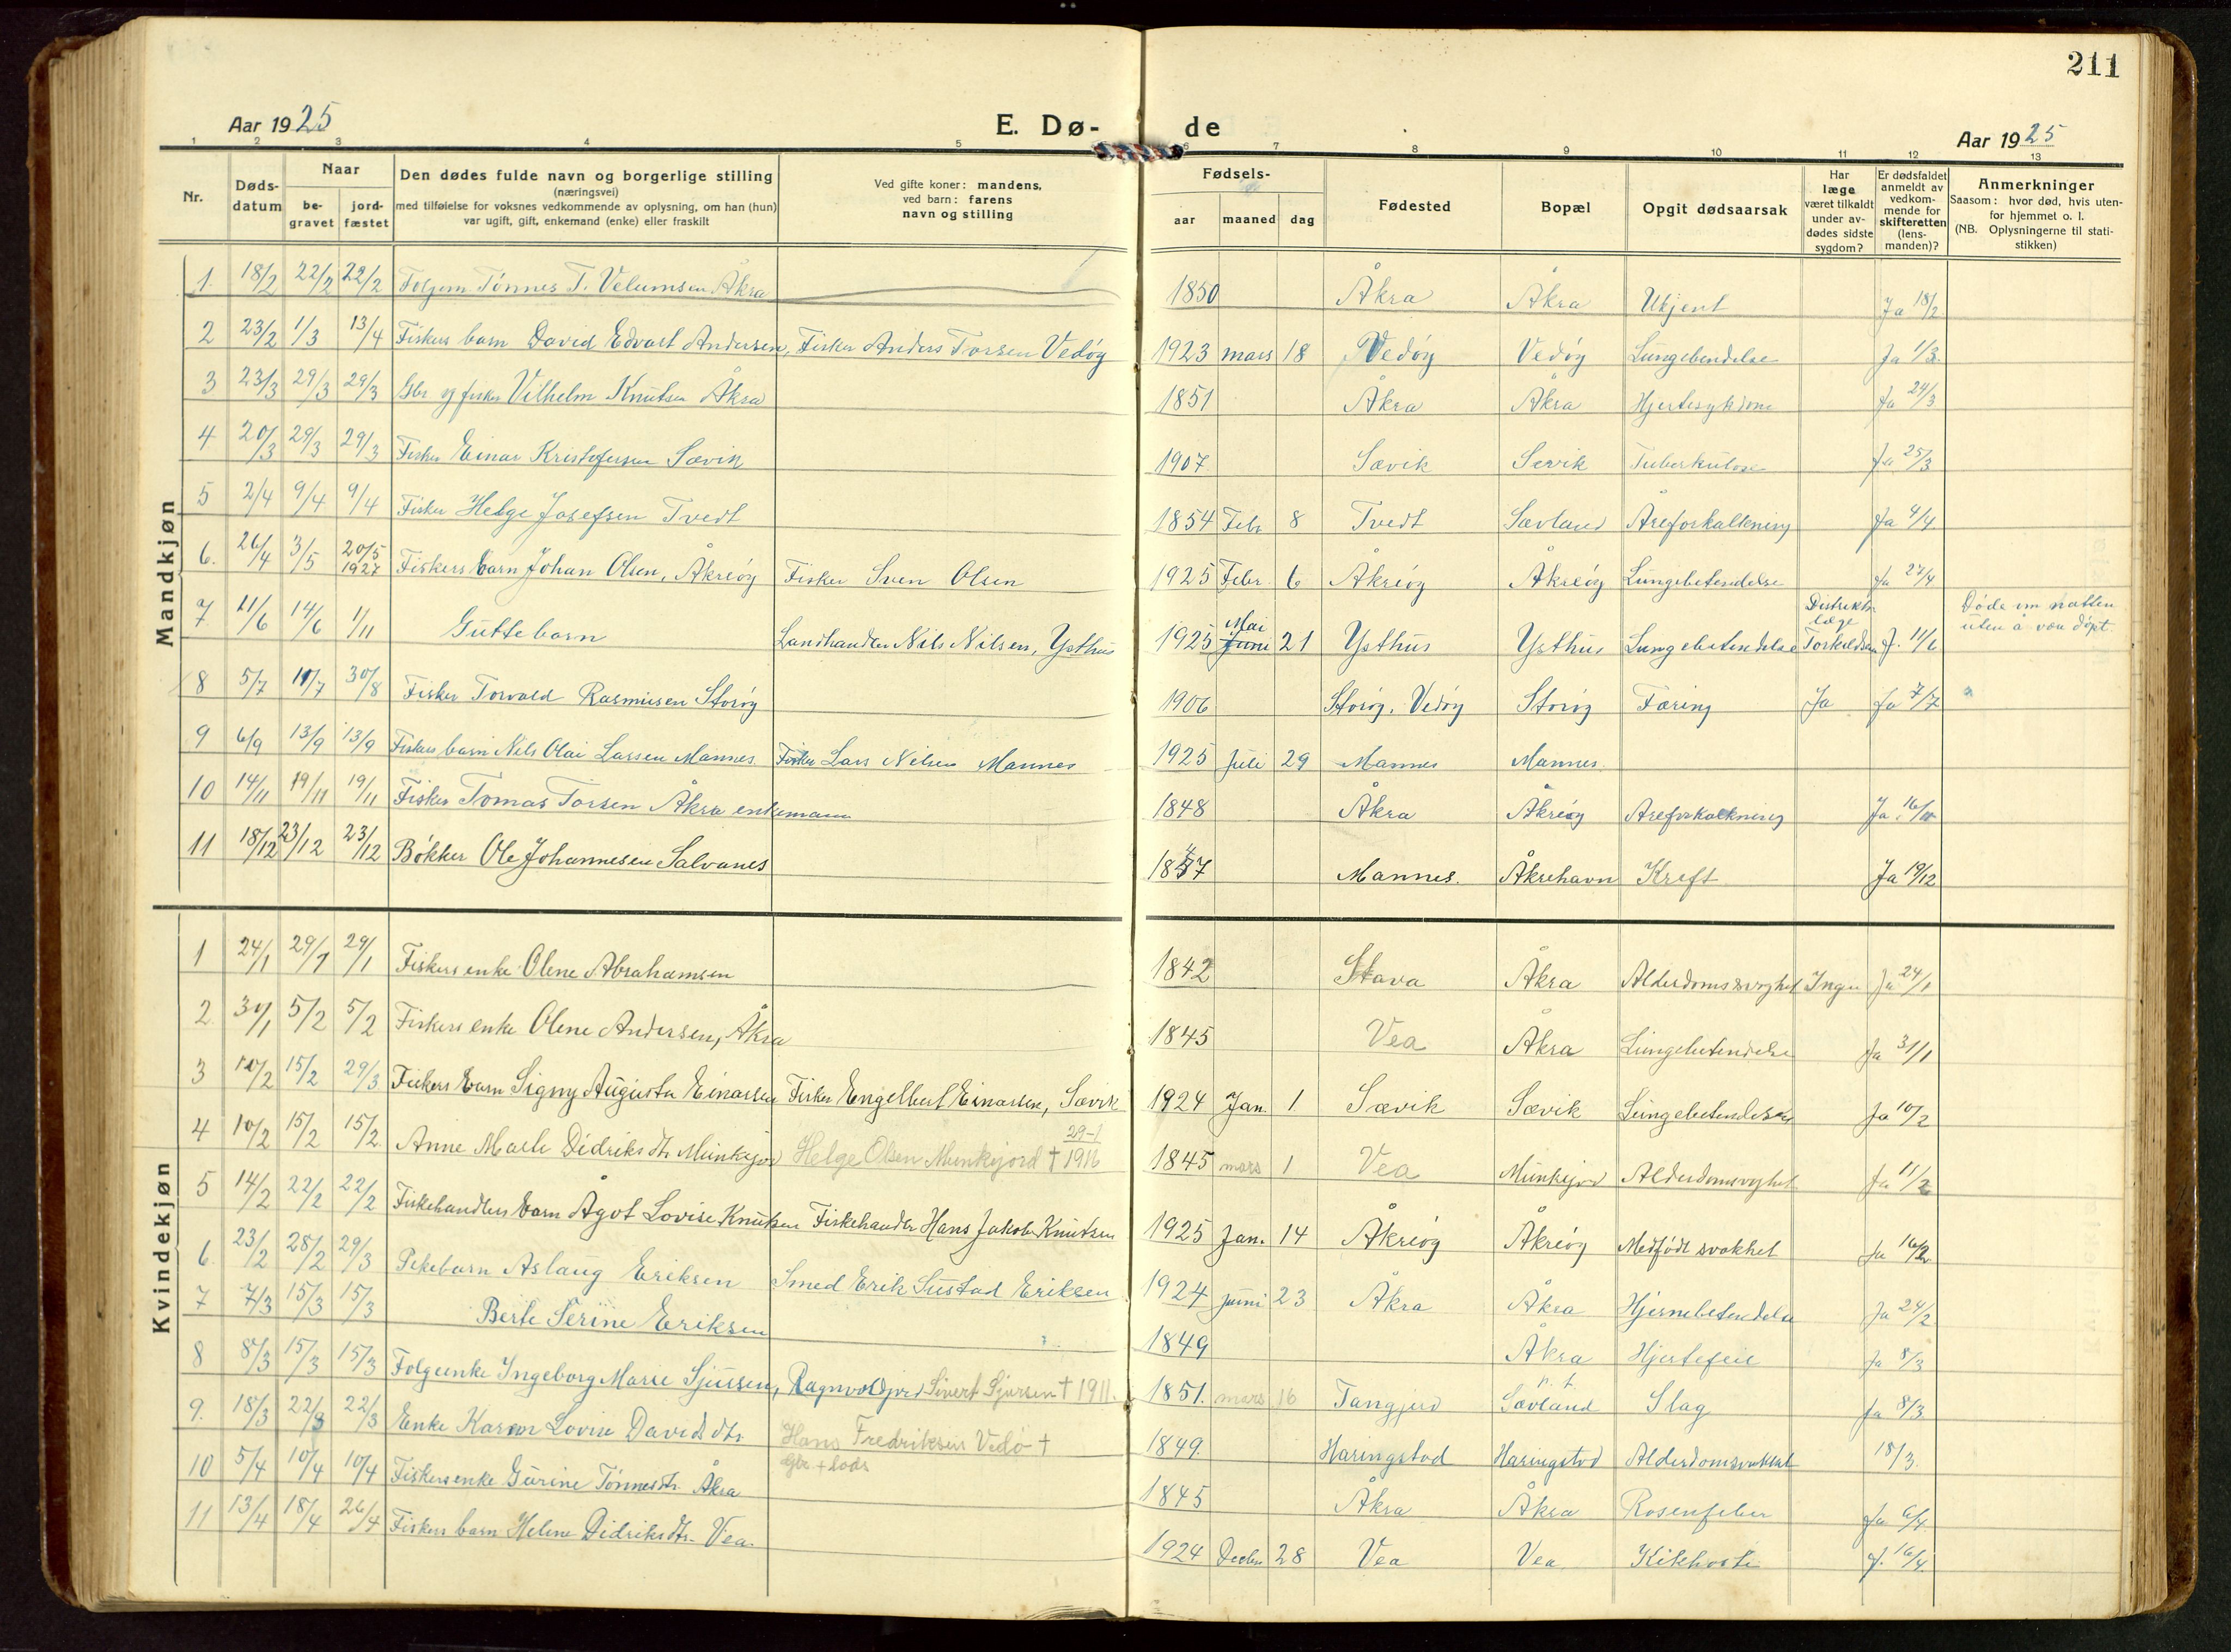 211
Aar 1925
E. Dø- de
Aar 1925
1 2 3 4 5 6 7 8 9 10 11 12 13
Nr.
Døds-
datum
Naar
be-
gravet
jord-
fæstet
Den dødes fulde navn og borgerlige stilling
(næringsvei)
med tilføielse for voksnes vedkommende av oplysning, om han (hun)
var ugift, gift, enkemand (enke) eller fraskilt
Ved gifte koner: mandens,
ved barn: farens
navn og stilling
Fødsels-
aar maaned dag
Fødested
Bopæl
Opgit dødsaarsak
Har
læge
været tilkaldt
under av-
dødes sidste
sygdom?
Er dødsfaldet
anmeldt av
vedkom-
mende for
skifteretten
(lens-
manden)?
Anmerkninger
Saasom: hvor død, hvis uten-
for hjemmet o. l.
(NB. Oplysningerne til stati-
stikken)
Mandkjøn
1. 18/2 22/2 22/2 Folgem. Tönnes T. Velumsen Åkra 1850 Åkra Åkra Ukjent Ja 18/2
2 23/2 1/3 13/4 Fiskers barn David Edvart Andersen, Fisker Anders Torsen Vedöy 1923 mars 18 Vedöy Vedöy Lungebendelse Ja 1/3
3 23/3 29/3 29/3 Gbr. og fisker Vilhelm Knutsen Åkra 1851 Åkra Åkra Hjertesykdom Ja 24/3
4 20/3 29/3 29/3 Fisker Einar Kristofersen Sævik 1907 Sævik Sevik Tuberkulose Ja 25/3
5 2/4 9/4 9/4 Fisker Helge Josefsen Tvedt 1854 Febr 8 Tvedt Sævland Åreforkalkning Ja 4/4
6. 26/4 3/5 20/5 1927 Fiskers barn Johan Olsen, Åkreöy Fisker Sven Olsen 1925 Febr. 6 Åkreöy Åkreöy Lungebetendelse Ja 27/4
7 11/6 14/6 1/11 Guttebarn Landhandler Nils Nilsen, Ysthus 1925 Juni Mai 21 Ysthus Ysthus Lungebetendelse Distrikts læge Torkildsen J. 11/6 Döde om natten uten å vær döpt.
8 5/7 11/7 30/8 Fisker Torvald Rasmusen Storöy 1906 Storöy, Vedöy Storöy Tæring Ja Ja 7/7
9 6/9 13/9 13/9 Fiskers barn Nils Olai Larsen Mannes Fisker Lars Nilsen Mannes 1925 Juli 29 Mannes Mannes.
10 14/11 19/11 19/11 Fisker Tomas Torsen Åkra enkemann 1848 Åkra Åkreöy Areforkalkning Ja. 16/11
11 18/12 23/12 23/12 Bökker Ole Johannesen Salvanes 1847 Mannes. Åkrehavn Kreft Ja 19/12
Kvindekjøn
1 24/1 29/1 29/1 Fiskers enke Olene Abrahamsen 1842 Stava Åkra Alderdomssvaghet Ingen Ja 24/1
2 31/1 5/2 5/2 Fiskers enke Olene Andersen, Åkra 1845 Vea Åkra Lungebetendelse Ja 31/1
3 10/2 15/2 29/3 Fiskers barn Signy Augusta Einarsen Fisker Engelbert Einarsen, Sævik 1924 Jan. 1 Sævik Sævik Lungebetendelse Ja 10/2
4 10/2 15/2 15/2 Anne Marte Didriks dtr Munkejor Helge Olsen Munkejord † 29-1 1916 1845 mars 1 Vea Munkejord Alderdomssvaghet Ja 11/2
5 14/2 22/2 22/2 Fiskehandlers barn Ågot Lovise Knutsen Fiskehandler Hans Jakob Knutsen 1925 Jan. 14 Åkreöy Åkreöy Medfödt svakhet Ja 16/2
6 23/2 28/2 29/3 Pekebarn Aslaug Eriksen Smed Erik Sustad Eriksen 1924 Juni 23 Åkra Åkra Hjernebetendelse Ja 24/2
7 7/3 15/3 15/3 Berte Serine Eriksen 1849 Åkra Hjertefeil Ja 8/3
8 8/3 15/3 15/3 Folgeenke Ingeborg Marie Sjursen, Ragnvaldjord Sivert Sjursen † 1911. 1851. mars 16 Tangjerd Sævland Slag Ja 8/3
9. 18/3 22/3 22/3 Enke Karen Lovise Davids dtr. Hans Fredriksen Vedö † Gbr + Lods 1849. Haringstad Haringstad Alderdomssvakhet 18/3
10 5/4 10/4 10/4 Fiskersenke Gurine Tönnesdtr. Åkra 1845 Åkra Åkra Rosenfeber Ja 6/4
11 13/4 18/4 26/4 Fiskers barn Helene Didriksdtr. Vea. 1924 Decbr 28 Vea Vea Kikhoste J. 16/4